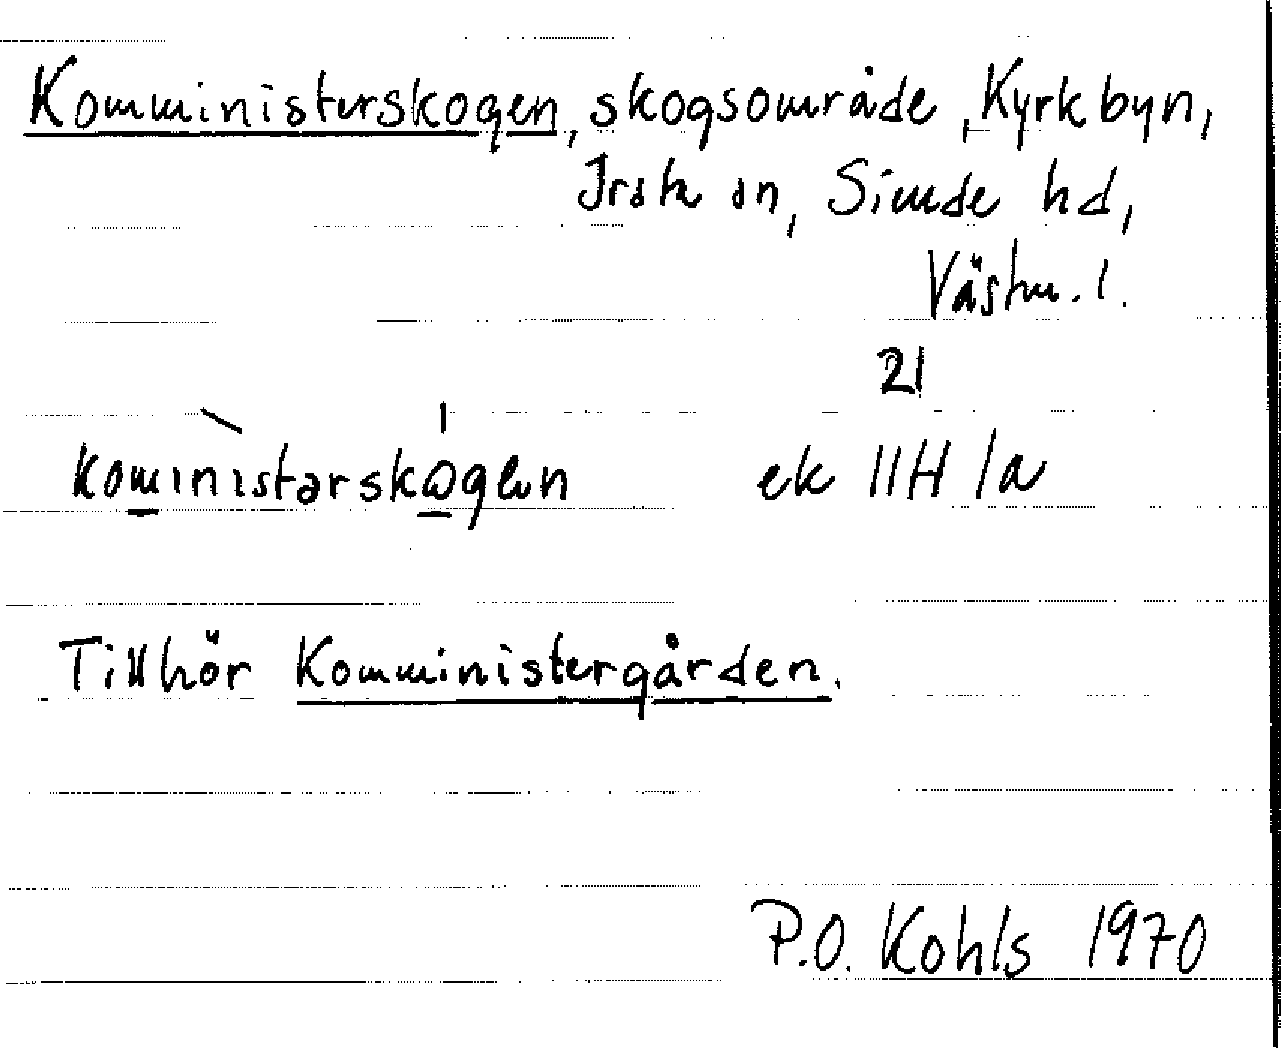 Komministerskogen, skogsområde, Kyrkbyn,
Irsta sn, Siende hd,
Västm. l.
21
koministərskωgən ek 11H 1a
Tillhör Komministergården.
P.O. Kohls 1970